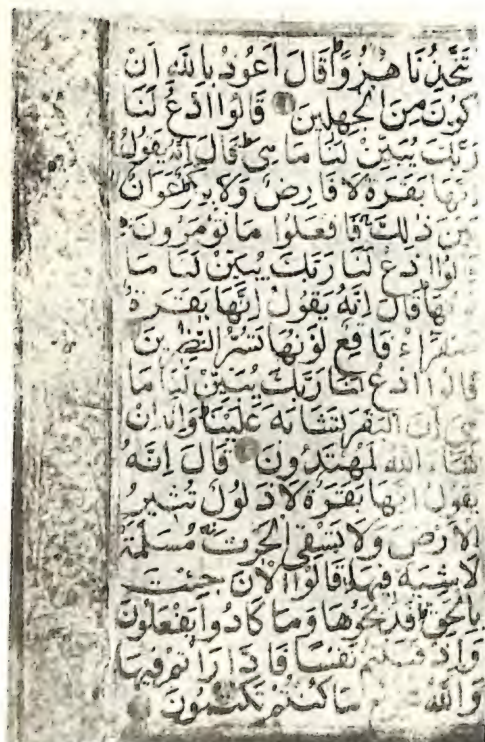 تَتَّخِذُنَا هُزُوًا قَالَ أَعُوذُ بِاللَّهِ أَنْ
أَكُونَ مِنَ الْجٰهِلِينَ قَالُوا ادْعُ لَنَا
رَبَّكَ يُبَيِّنْ لَنَا مَا هِيَ قَالَ إِنَّهُ يَقُولُ
إِنَّهَا بَقَرَةٌ لَا فَارِضٌ وَلَا بِكْرٌ عَوَانٌ
بَيْنَ ذٰلِكَ فَافْعَلُوا مَا تُؤْمَرُونَ
قَالُوا ادْعُ لَنَا رَبَّكَ يُبَيِّنْ لَنَا مَا
لَوْنُهَا قَالَ إِنَّهُ يَقُولُ إِنَّهَا بَقَرَةٌ
صَفْرَاءُ فَاقِعٌ لَوْنُهَا تَسُرُّ النّٰظِرِينَ
قَالُوا ادْعُ لَنَا رَبَّكَ يُبَيِّنْ لَنَا مَا
هِيَ إِنَّ الْبَقَرَ تَشَابَهَ عَلَيْنَا وَإِنَّا إِنْ
شَاءَ اللَّهُ لَمُهْتَدُونَ قَالَ إِنَّهُ
يَقُولُ إِنَّهَا بَقَرَةٌ لَا ذَلُولٌ تُثِيرُ
الْأَرْضَ وَلَا تَسْقِي الْحَرْثَ مُسَلَّمَةٌ
لَا شِيَةَ فِيهَا قَالُوا الْآنَ جِئْتَ
بِالْحَقِّ فَذَبَحُوهَا وَمَا كَادُوا يَفْعَلُونَ
وَإِذْ قَتَلْتُمْ نَفْسًا فَادّٰرَأْتُمْ فِيهَا
وَاللَّهُ مَا كُنْتُمْ تَكْتُمُونَ